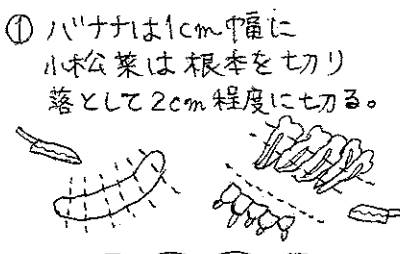 ① バナナは1cm幅に
小松菜は根本を切り
落として2cm程度に切る。